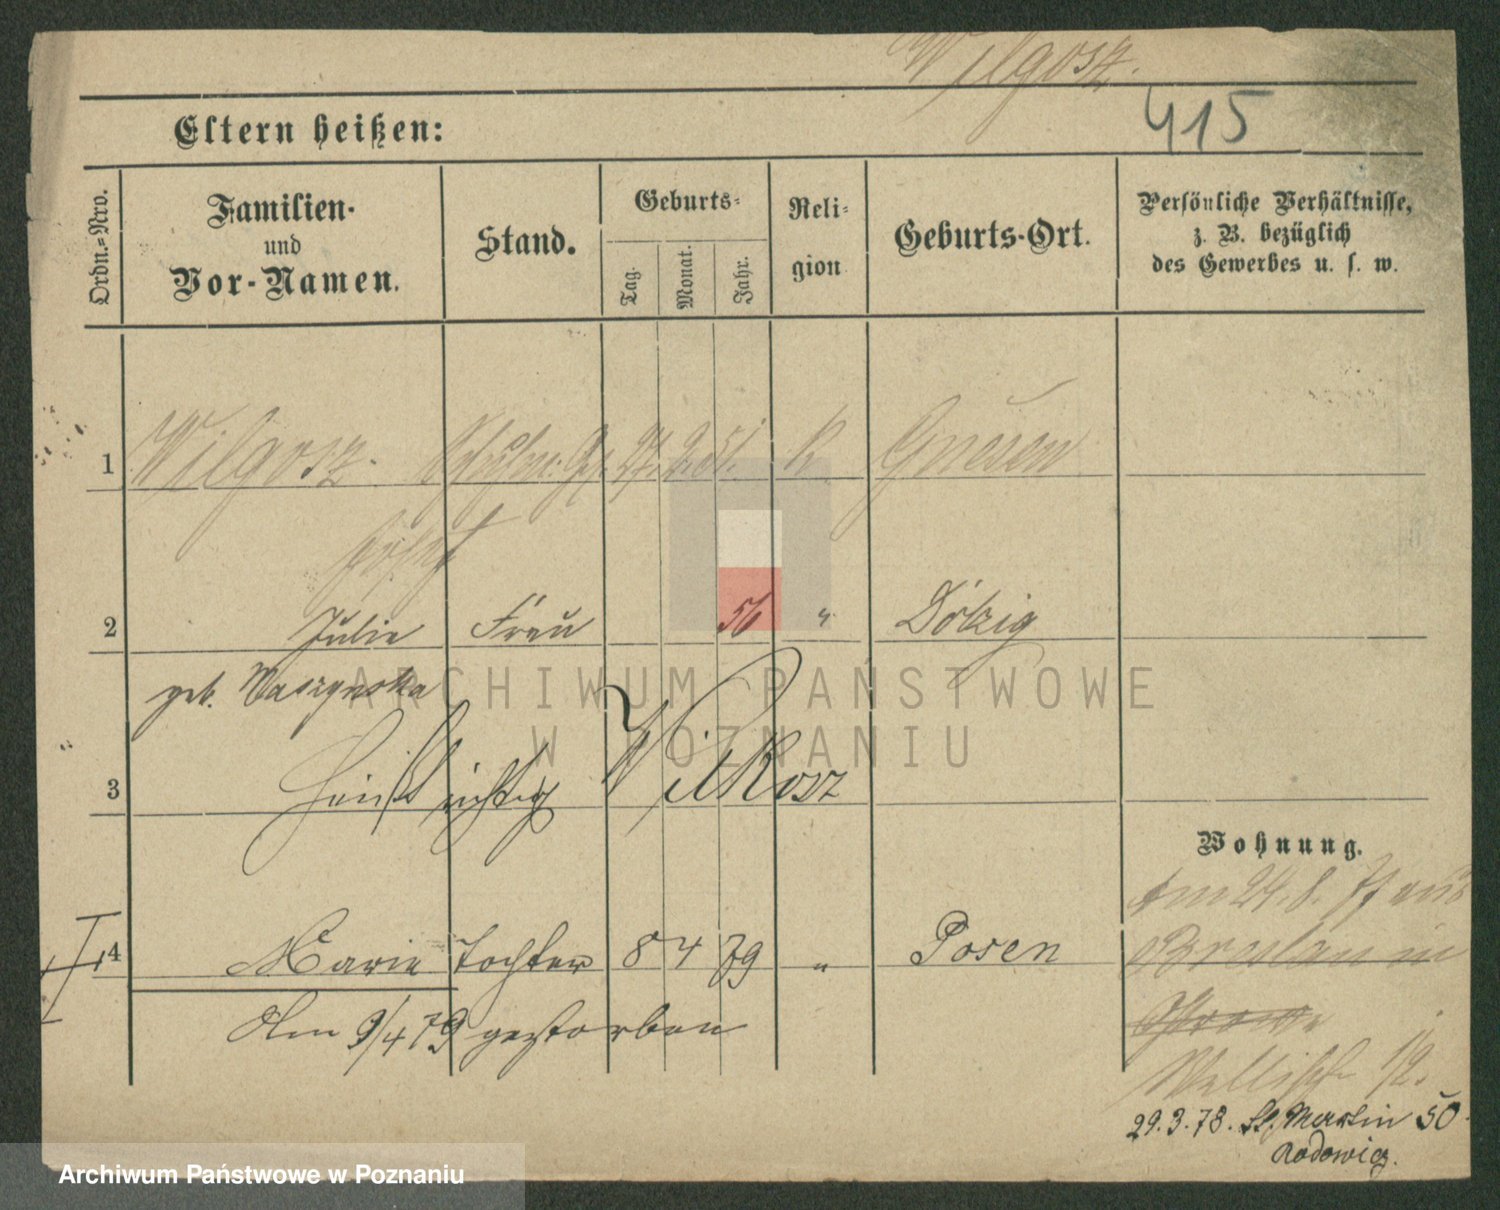 Wilgosz.
415
Eltern heißen:
Ordn.-Nro.
Familien-
und
Vor-Namen.
Stand.
Geburts-
Tag.
Monat.
Jahr.
Reli-
gion
Geburts-Ort.
Persönliche Verhältnisse,
z. B. bezüglich
des Gewerbes u. s. w.
1 Wilgosz. 27. 2. 51. k Gnesen
Josef
2 Julie Frau 56 " Dölzig
geb. Waszynska
3 heißt richtig Wilkosz
Wohnung.
Am 24. 8. 77 aus
Breslau in
4 Marie Tochter 8 4 79 " Posen
Am 9/4 79 gestorben
12.
29.3.78. St. Martin 50
Radowicz.
ARCHIWUM PAŃSTWOWE
W POZNANIU
Archiwum Państwowe w Poznaniu